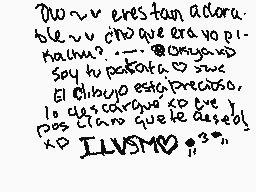 Owo ~v~ eres tan adora-
ble ~v~ ¿no que era yo pi-
kachu? ._.
soy tu patata ♡
El dibujo está precioso,
lo descargué xD eve y
pos claro que te deseo!
xD ILVSM♡ •3•